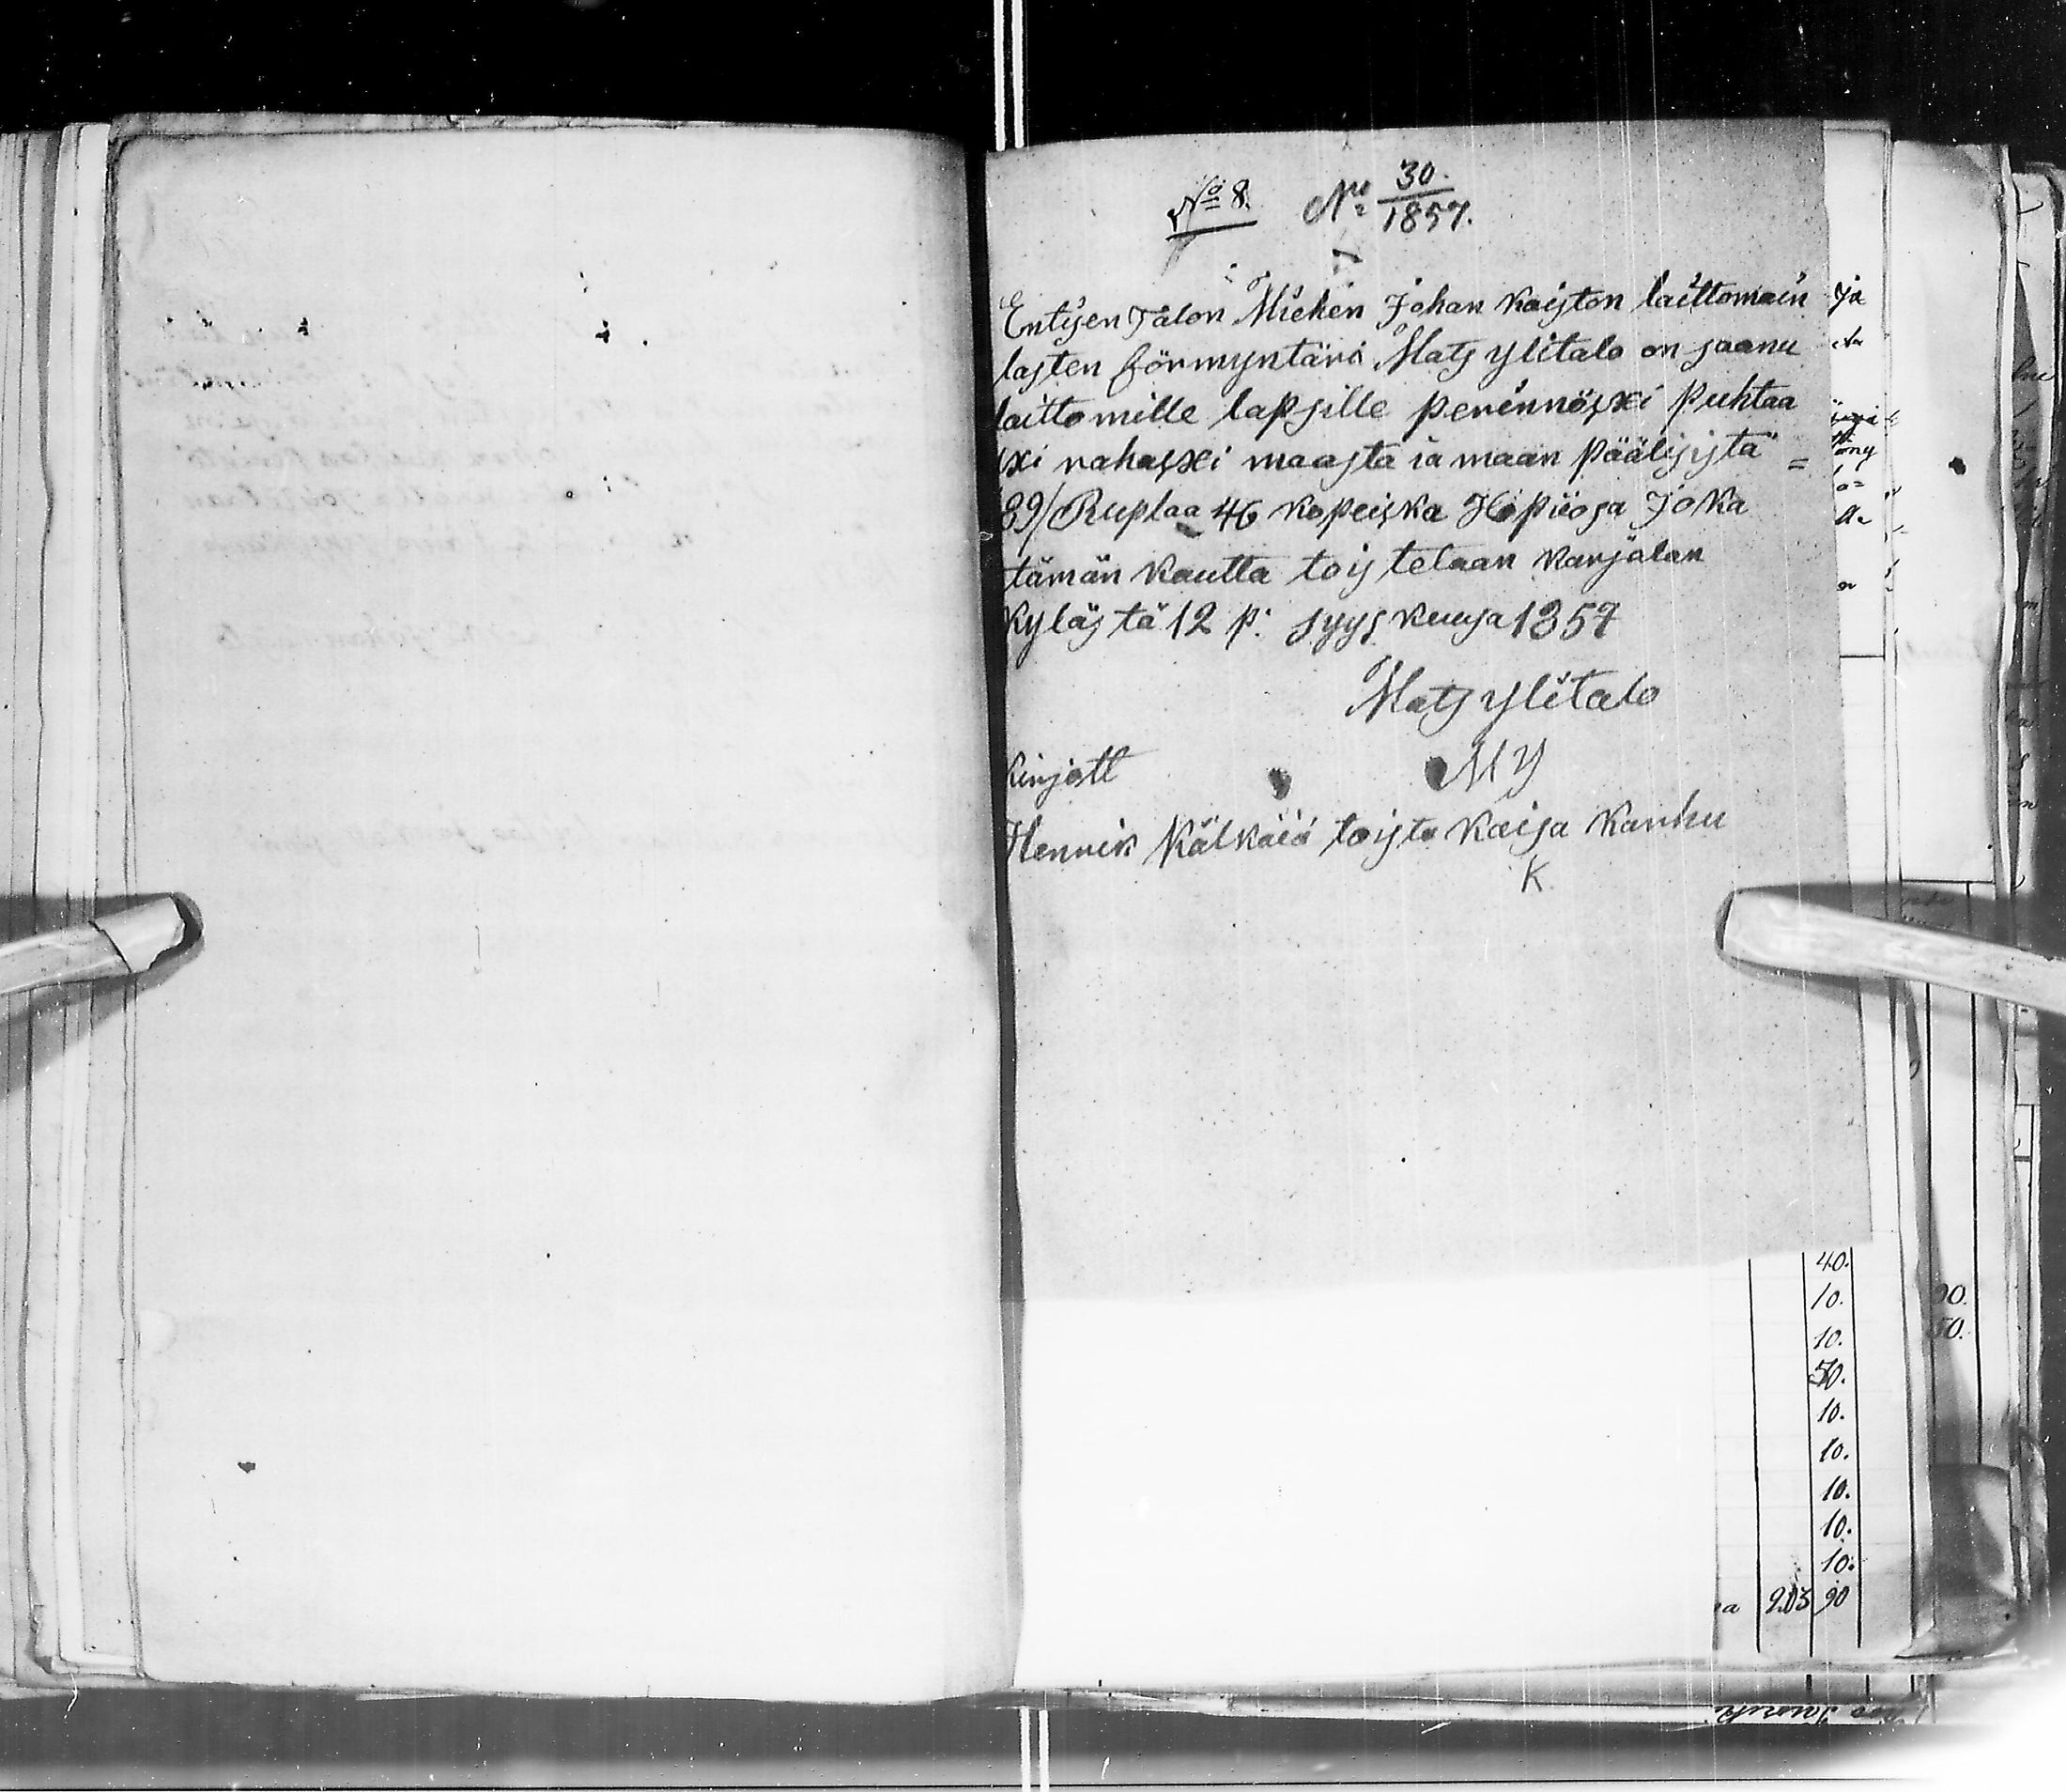 No 8. No 30./1857.
Entisen Talon Miehen Johan Kaiston laittomain
lasten förmyntäri Mats Ylitalo on saanu
laittomille lapsille perinnöxi Puhtaa
xi rahaxi maasta ia maan päälisistä =
89/ Ruplaa 46 kopeiska Hopiosa Joka
tämän kautta toistetaan Karjalan
Kylästä 12 p: syys kuusa 1857
Mats Ylitalo
MY
kirjott
Henrik Kälkäiä toista Kaisa Kanku
K
40.
10.
10.
50.
10.
10.
10.
10.
10.
203 90